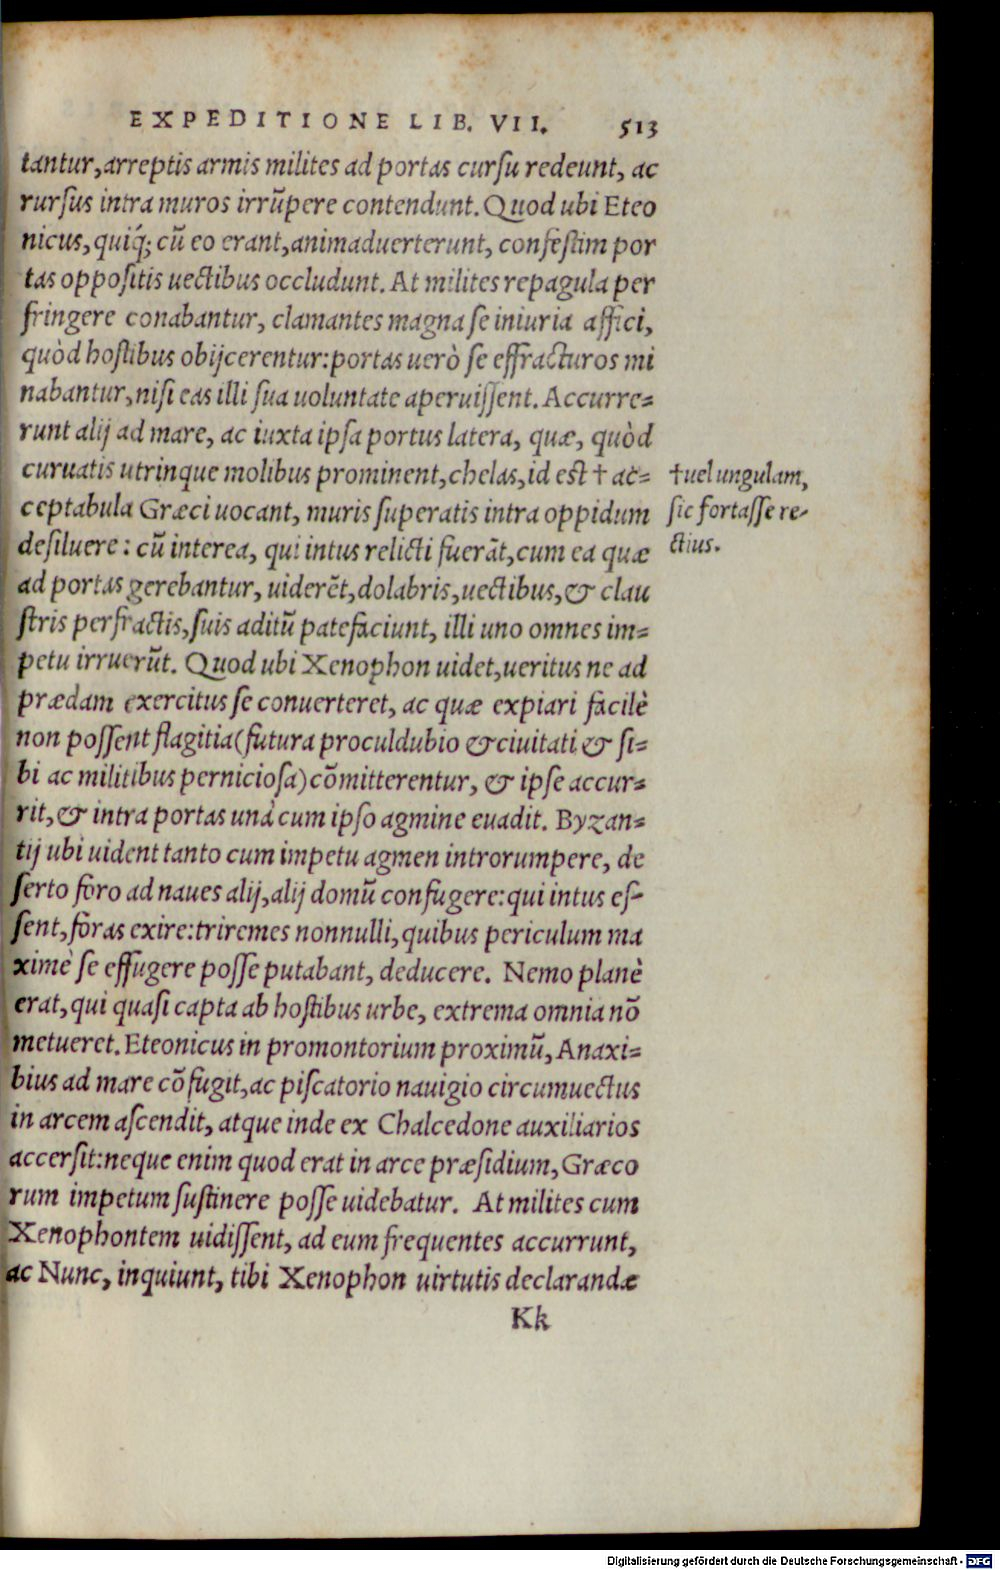 EXPEDITIONE LIB. VII. 513
tantur, arreptis armis milites ad portas cursu redeunt, ac
rursus intra muros irrũpere contendunt. Quod ubi Eteo
nicus, quiq́; cũ eo erant, animaduerterunt, confestim por
tas oppositis uectibus occludunt. At milites repagula per
fringere conabantur, clamantes magna se iniuria affici,
quòd hostibus obijcerentur: portas uerò se effracturos mi
nabantur, nisi eas illi sua uoluntate aperuissent. Accurre=
runt alij ad mare, ac iuxta ipsa portus latera, quæ, quòd
curuatis utrinque molibus prominent, chelas, id est † ac=
ceptabula Græci uocant, muris superatis intra oppidum
desiluere: cũ interea, qui intus relicti fuerãt, cum ea quæ
ad portas gerebantur, uiderẽt, dolabris, uectibus, & clau
stris perfractis, suis aditũ patefaciunt, illi uno omnes im=
petu irruerũt. Quod ubi Xenophon uidet, ueritus ne ad
prædam exercitus se conuerteret, ac quæ expiari facilè
non possent flagitia (futura proculdubio & ciuitati & si=
bi ac militibus perniciosa) cõmitterentur, & ipse accur=
rit, & intra portas unà cum ipso agmine euadit. Byzan=
tij ubi uident tanto cum impetu agmen introrumpere, de
serto foro ad naues alij, alij domũ confugere: qui intus es-
sent, foras exire: triremes nonnulli, quibus periculum ma
ximè se effugere posse putabant, deducere. Nemo planè
erat, qui quasi capta ab hostibus urbe, extrema omnia nõ
metueret. Eteonicus in promontorium proximũ, Anaxi=
bius ad mare cõfugit, ac piscatorio nauigio circumuectus
in arcem ascendit, atque inde ex Chalcedone auxiliarios
accersit: neque enim quod erat in arce præsidium, Græco
rum impetum sustinere posse uidebatur. At milites cum
Xenophontem uidissent, ad eum frequentes accurrunt,
ac Nunc, inquiunt, tibi Xenophon uirtutis declarandæ
Kk
† uel ungulam,
sic fortasse re-
ctius.
Digitalisierung gefördert durch die Deutsche Forschungsgemeinschaft - DFG